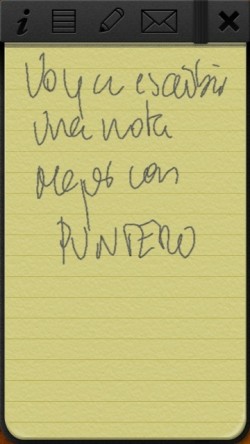 Voy a escribir
una nota
mejor con
PUNTERO